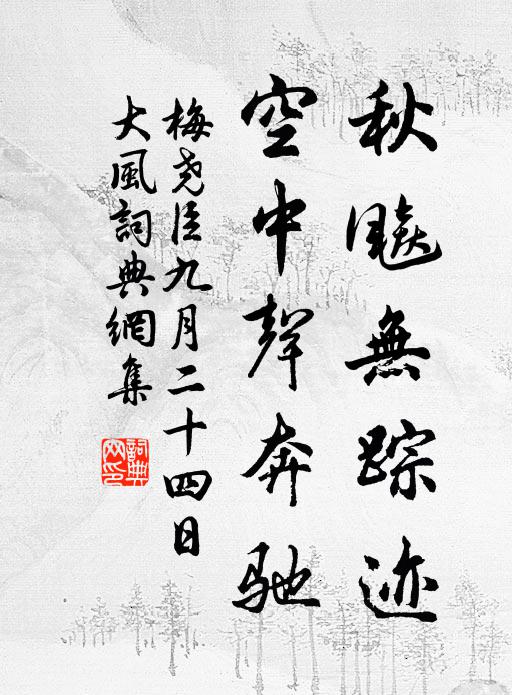 秋飚無踪迹
空中聲奔馳
梅尧臣九月二十四日
大風詞典網集
詞典
网印